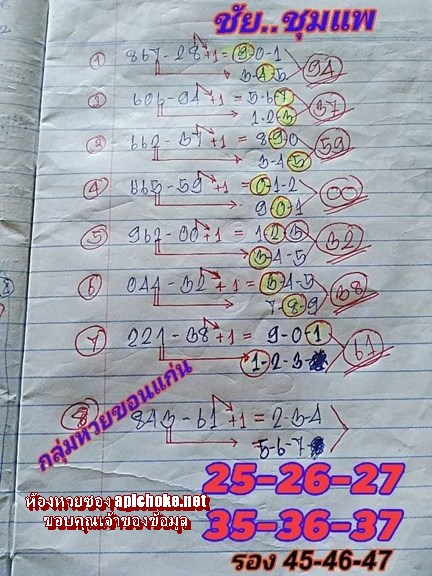 ชัย..ชุมแพ
① 867-28+1=9-0-1
3-4-5 94
② 606-94+1=5-6-7
1-2-3 37
③ 662-37+1=8-9-0
3-4-5 59
④ 865-59+1=0-1-2
9-0-1 00
⑤ 962-00+1=1-2-3
3-4-5 32
⑥ 044-32+1=3-4-5
7-8-9 38
⑦ 221-38+1=9-0-1
1-2-3 61
⑧ 843-61+1=2-3-4
5-6-7
กลุ่มหวยขอนแก่น
25-26-27
ห้องหวยซอง apichoke.net
ขอบคุณเจ้าของข้อมูล
35-36-37
รอง 45-46-47